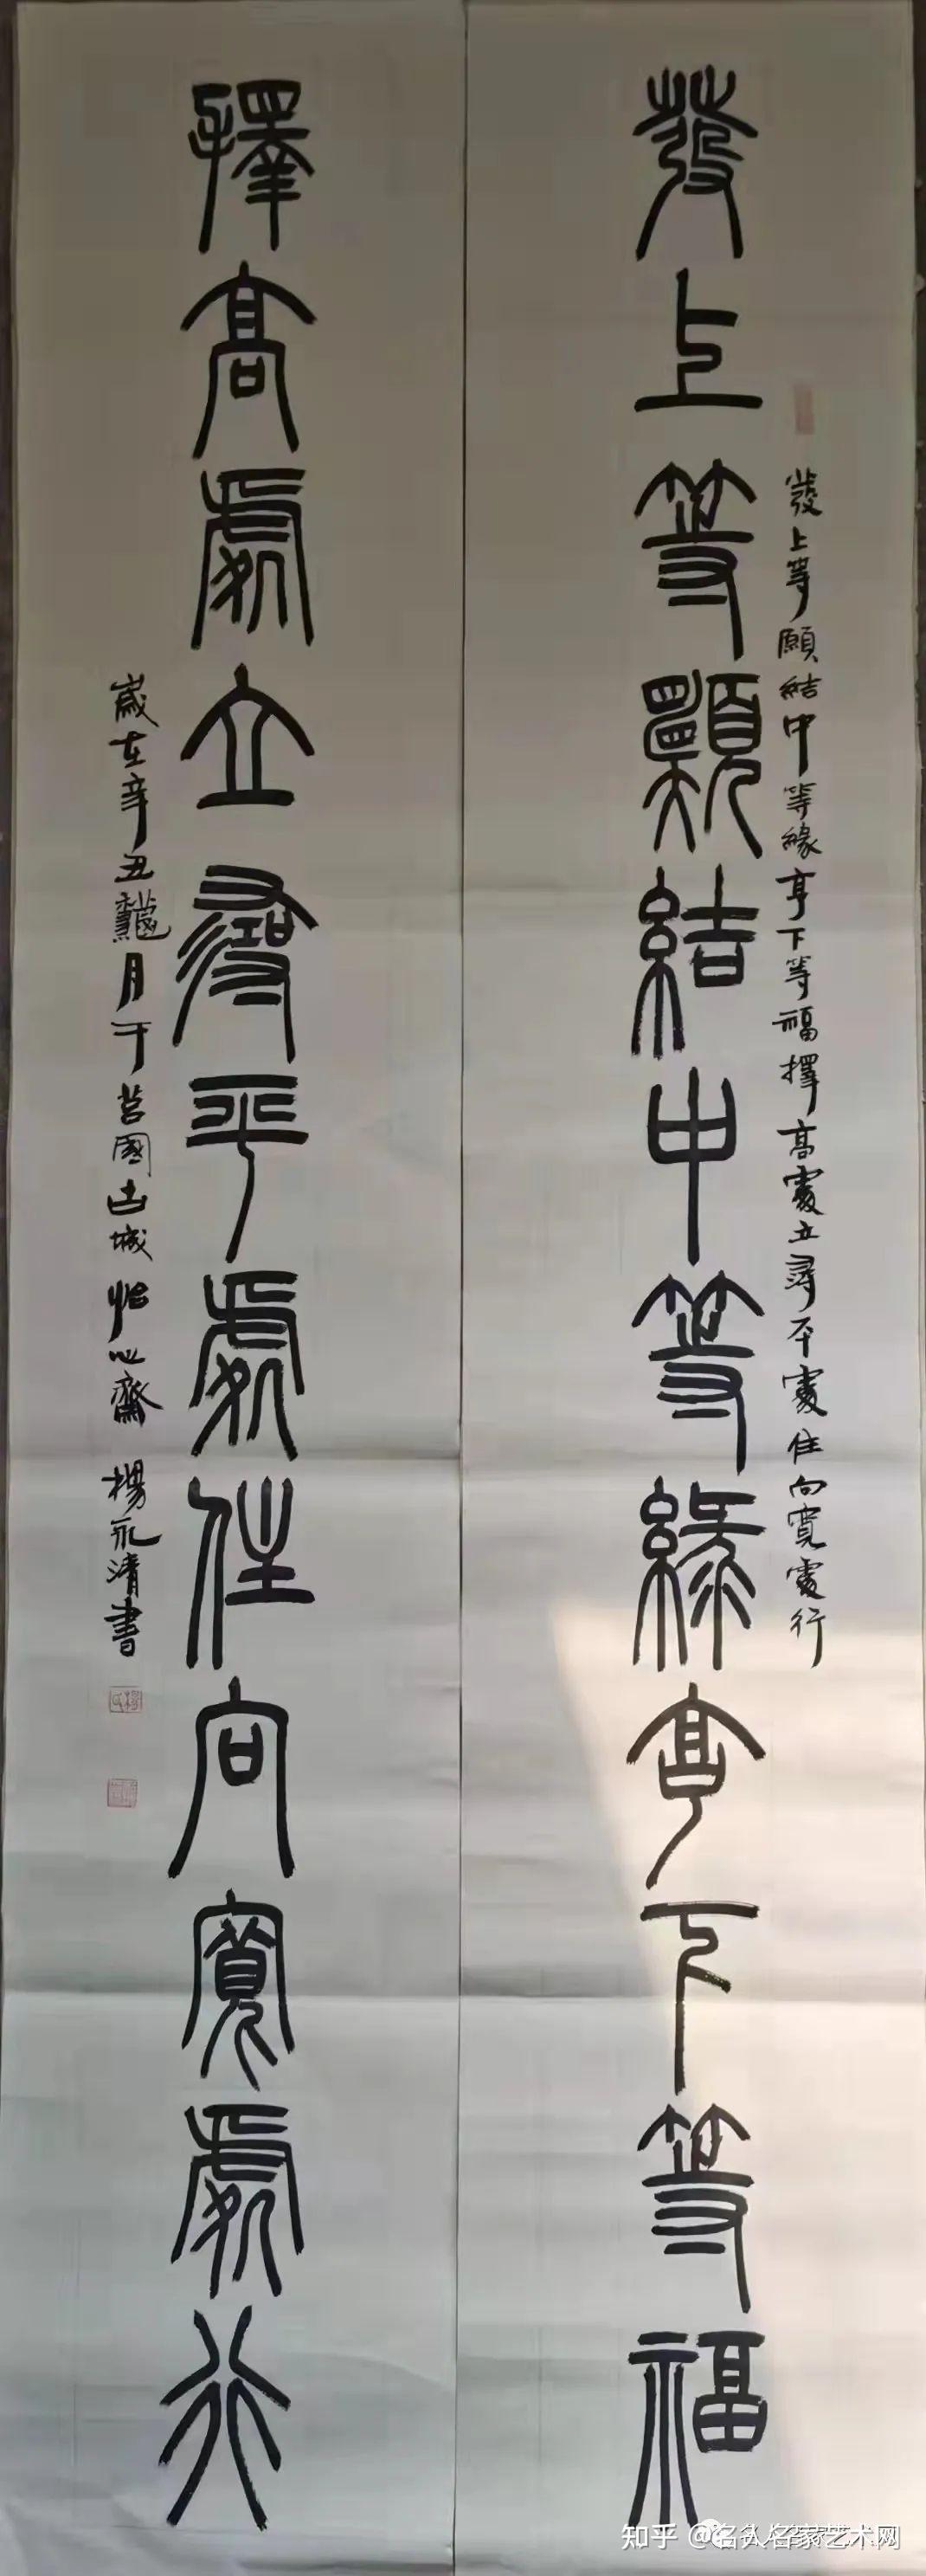 發上等願結中等緣享下等福
發上等願結中等緣享下等福擇高處立尋平處住向寬處行
擇高處立尋平處住向寬處行
歲在辛丑龝月于莒國古城怡心齋 楊永清書
知乎 @名人名家艺术网